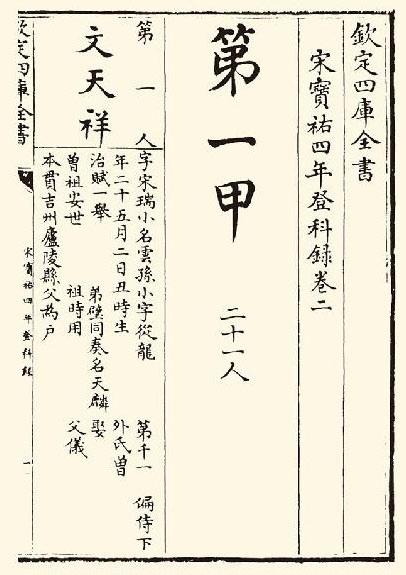 欽定四庫全書
宋寶祐四年登科錄卷二
第一甲 二十一人
第一人
文天祥
字宋瑞小名雲孫小字從龍 第千一 偏侍下
年二十五月二日丑時生 外氏曾
治賦一舉 弟璧同奏名天麟 娶
曾祖安世 祖時用 父儀
本貫吉州廬陵縣父為戶
欽定四庫全書
宋寶祐四年登科錄
一